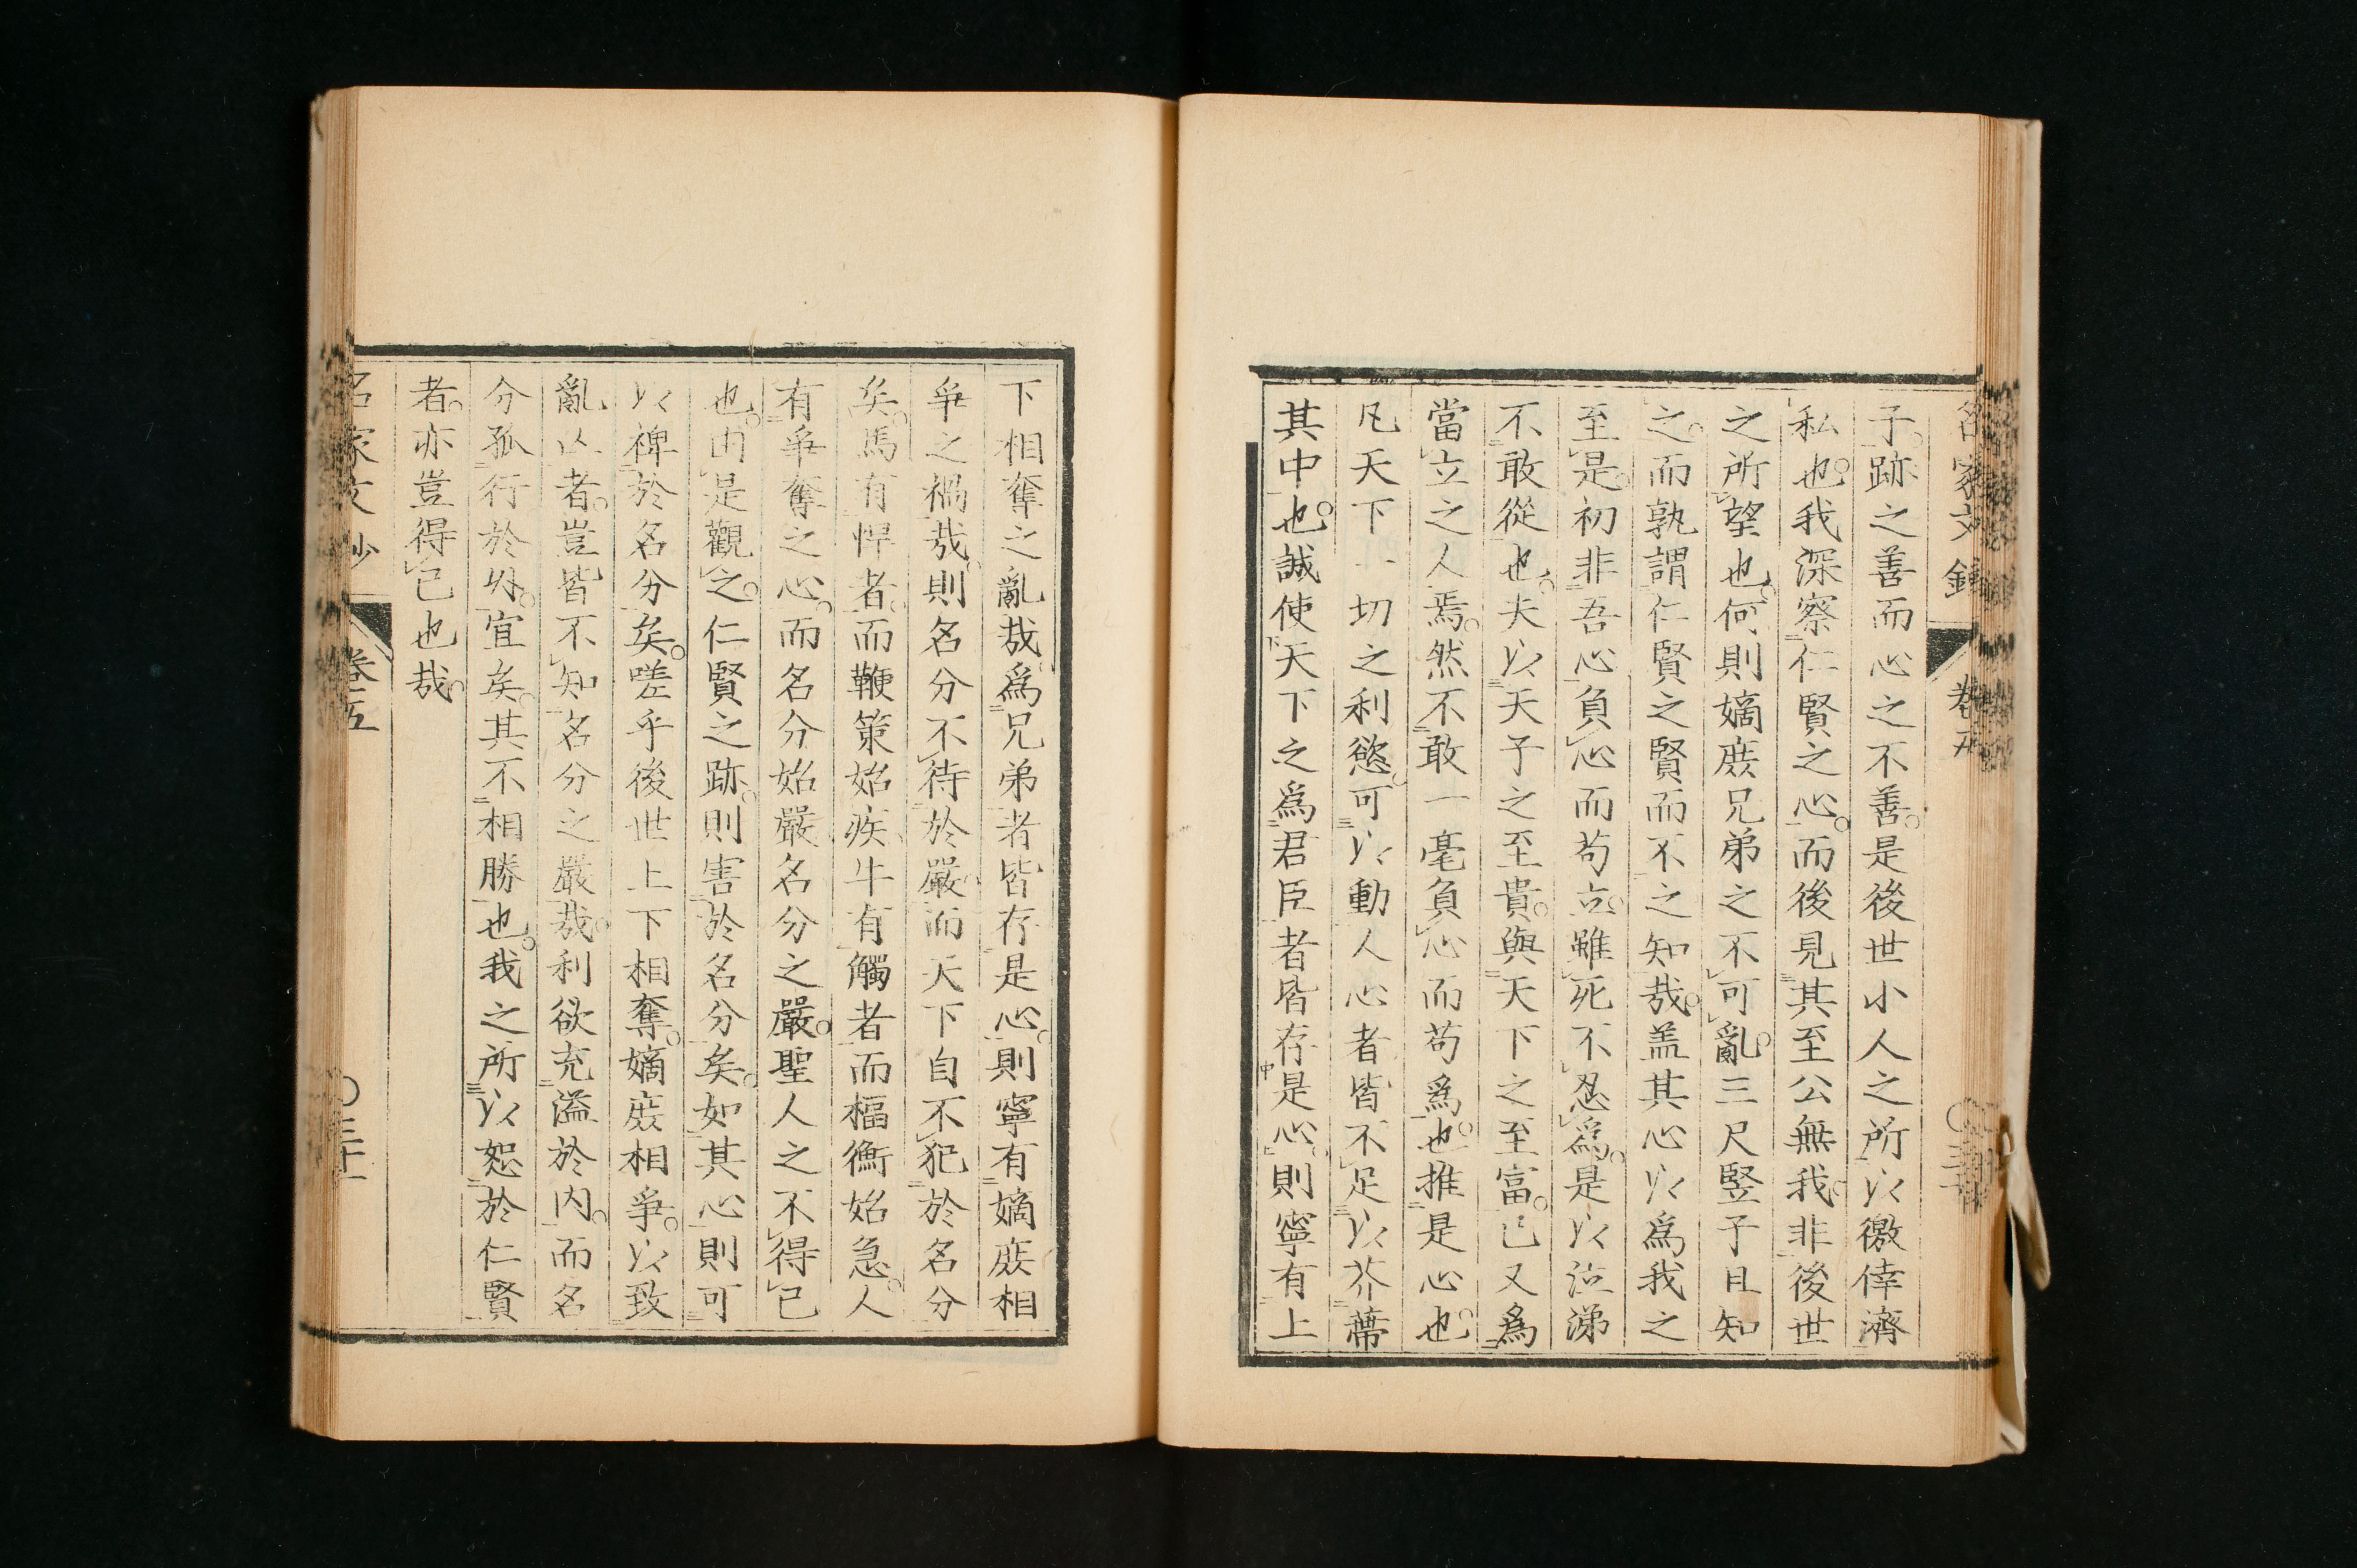 名家文鈔 卷五
子。跡之善而心之不善。是後世小人之所以徼倖濟
私也。我深察仁賢之心。而後見其至公無我。非後世
之所望也。何則嫡庻兄弟之不可亂。三尺竪子且知
之。而孰謂仁賢之賢而不之知哉。盖其心以爲我之
至是。初非吾心負心而苟立。雖死不忍爲。是以泣涕
不敢從也。夫以天子之至貴。與天下之至富。已又爲
當立之人焉。然不敢一毫負心而苟爲也。推是心也。
凡天下一切之利慾。可以動人心者皆不足以芥蔕
其中也。誠使天下之爲君臣者皆存是心。則寧有上
下相奪之亂哉。爲兄弟者皆存是心。則寧有嫡庻相
爭之禍哉。則名分不待於嚴。而天下自不犯於名分
矣。馬有悍者。而鞭策始疾。牛有觸者而楅衡始急。人
有爭奪之心。而名分始嚴。名分之嚴。聖人之不得已
也。由是觀之。仁賢之跡。則害於名分矣。如其心則可
以裨於名分矣。嗟乎後世上下相奪。嫡庻相爭。以致
亂亾者。豈皆不知名分之嚴哉。利欲充溢於内。而名
分孤行於外。宜矣。其不相勝也。我之所以恕於仁賢
者。亦豈得已也哉。
名家文鈔 卷五 〇三十一